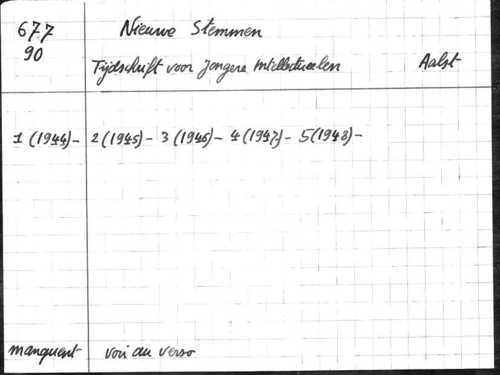 677 Nieuwe Stemmen
90
Tijdschrift voor jongere Intellectueelen Aalst
1 (1944) - 2 (1945) - 3 (1946) - 4 (1947) - 5 (1948) -
manquent voir au verso